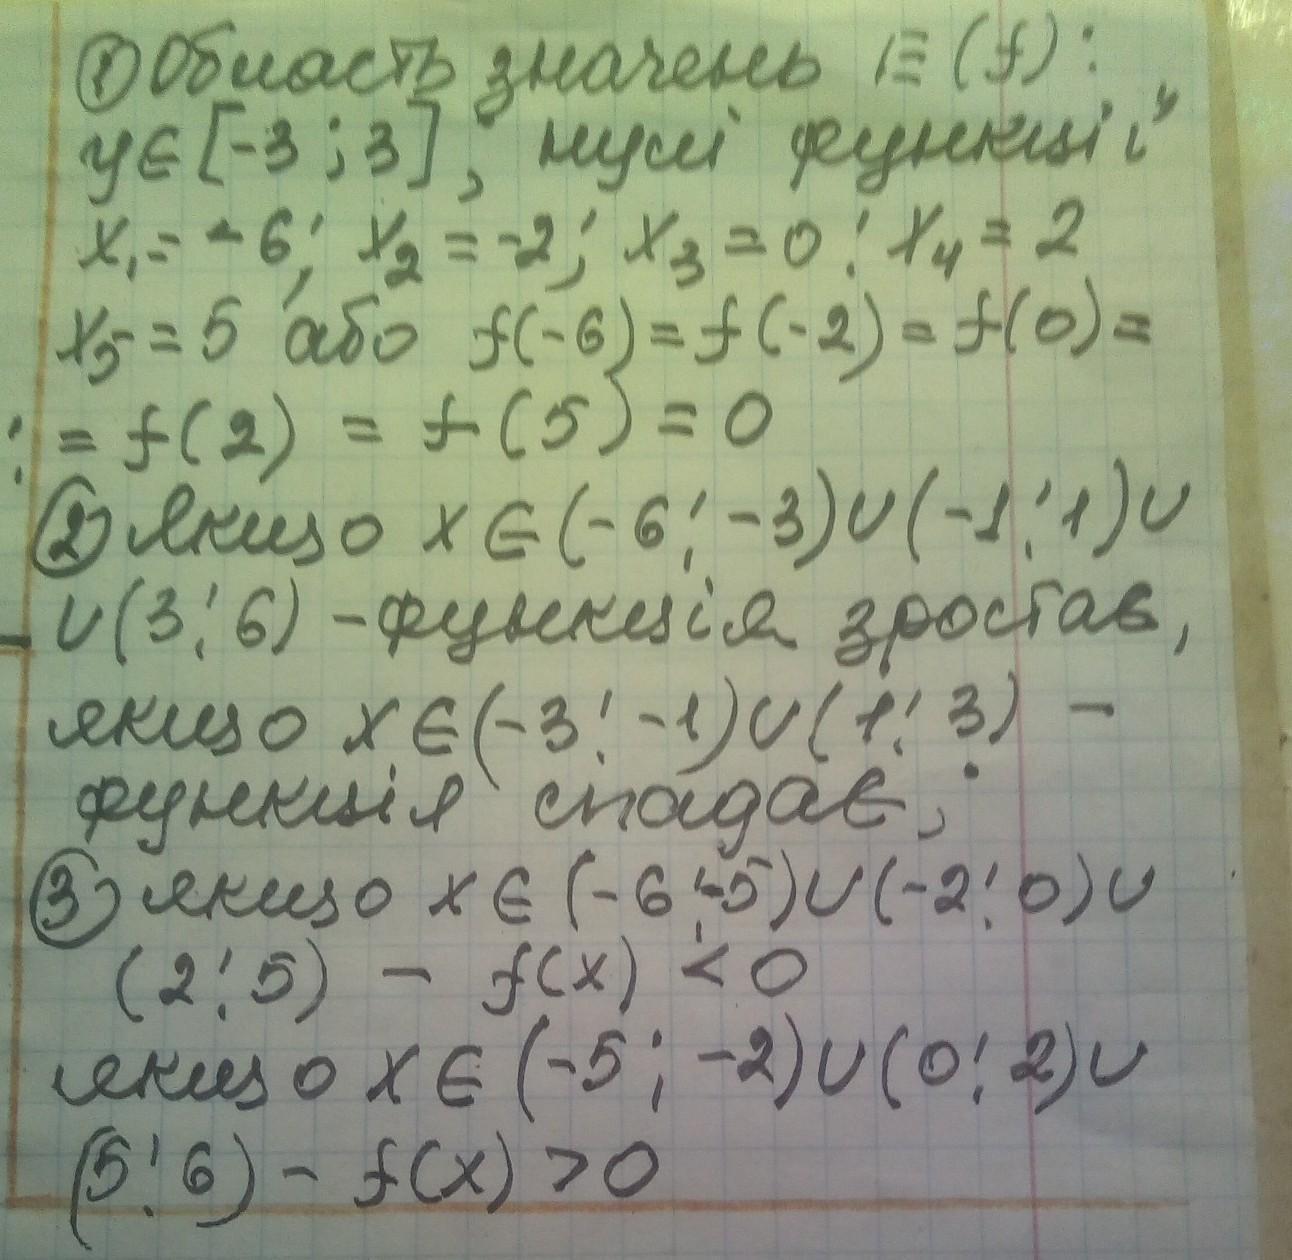 ① Область значень E(f):
y∈[-3;3], нулі функції
x₁=-6; x₂=-2; x₃=0; x₄=2
x₅=5 або f(-6)=f(-2)=f(0)=
=f(2)=f(5)=0
② Якщо x∈(-6;-3)∪(-1;1)∪
∪(3;6)-функція зростає,
якщо x∈(-3;-1)∪(1;3) -
функція спадає;
③ якщо x∈(-6;-5)∪(-2;0)∪
(2;5) - f(x)<0
якщо x∈(-5;-2)∪(0;2)∪
(5;6) - f(x)>0